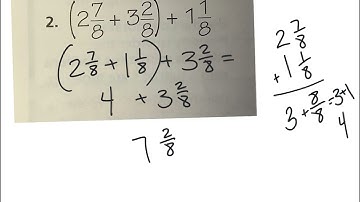 2. (2 7/8 + 3 2/8) + 1 1/8
(2 7/8 + 1 1/8) + 3 2/8 =
4 + 3 2/8
7 2/8
2 7/8
+ 1 1/8
3 + 8/8 = 3+1
4